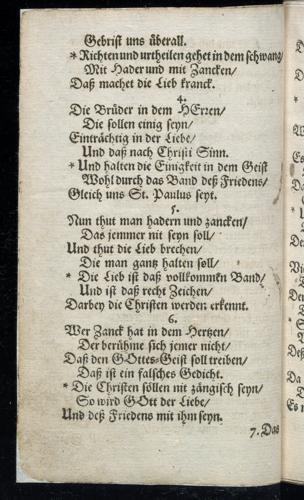 Gebrist uns überall.
* Richten und urtheilen gehet in dem schwang/
Mit Hader und mit Zancken/
Daß machet die Lieb kranck.
4.
Die Brüder in dem HErren/
Die sollen einig seyn/
Einträchtig in der Liebe/
Und daß nach Christi Sinn.
* Und halten die Einigkeit in dem Geist
Wohl durch das Band deß Friedens/
Gleich uns St. Paulus seyt.
5.
Nun thut man hadern und zancken/
Das jemmer nit seyn soll/
Und thut die Lieb brechen/
Die man gantz halten soll/
* Die Lieb ist daß vollkommkn Band/
Und ist daß recht Zeichen/
Darbey die Christen werden erkennt.
6.
Wer Zanck hat in dem Hertzen/
Der berühme sich jemer nicht/
Daß den GOttes-Geist soll treiben/
Daß ist ein falsches Gedicht.
* Die Christen söllen nit zängisch seyn/
So wird GOtt der Liebe/
Und deß Friedens mit ihm seyn.
7. Das